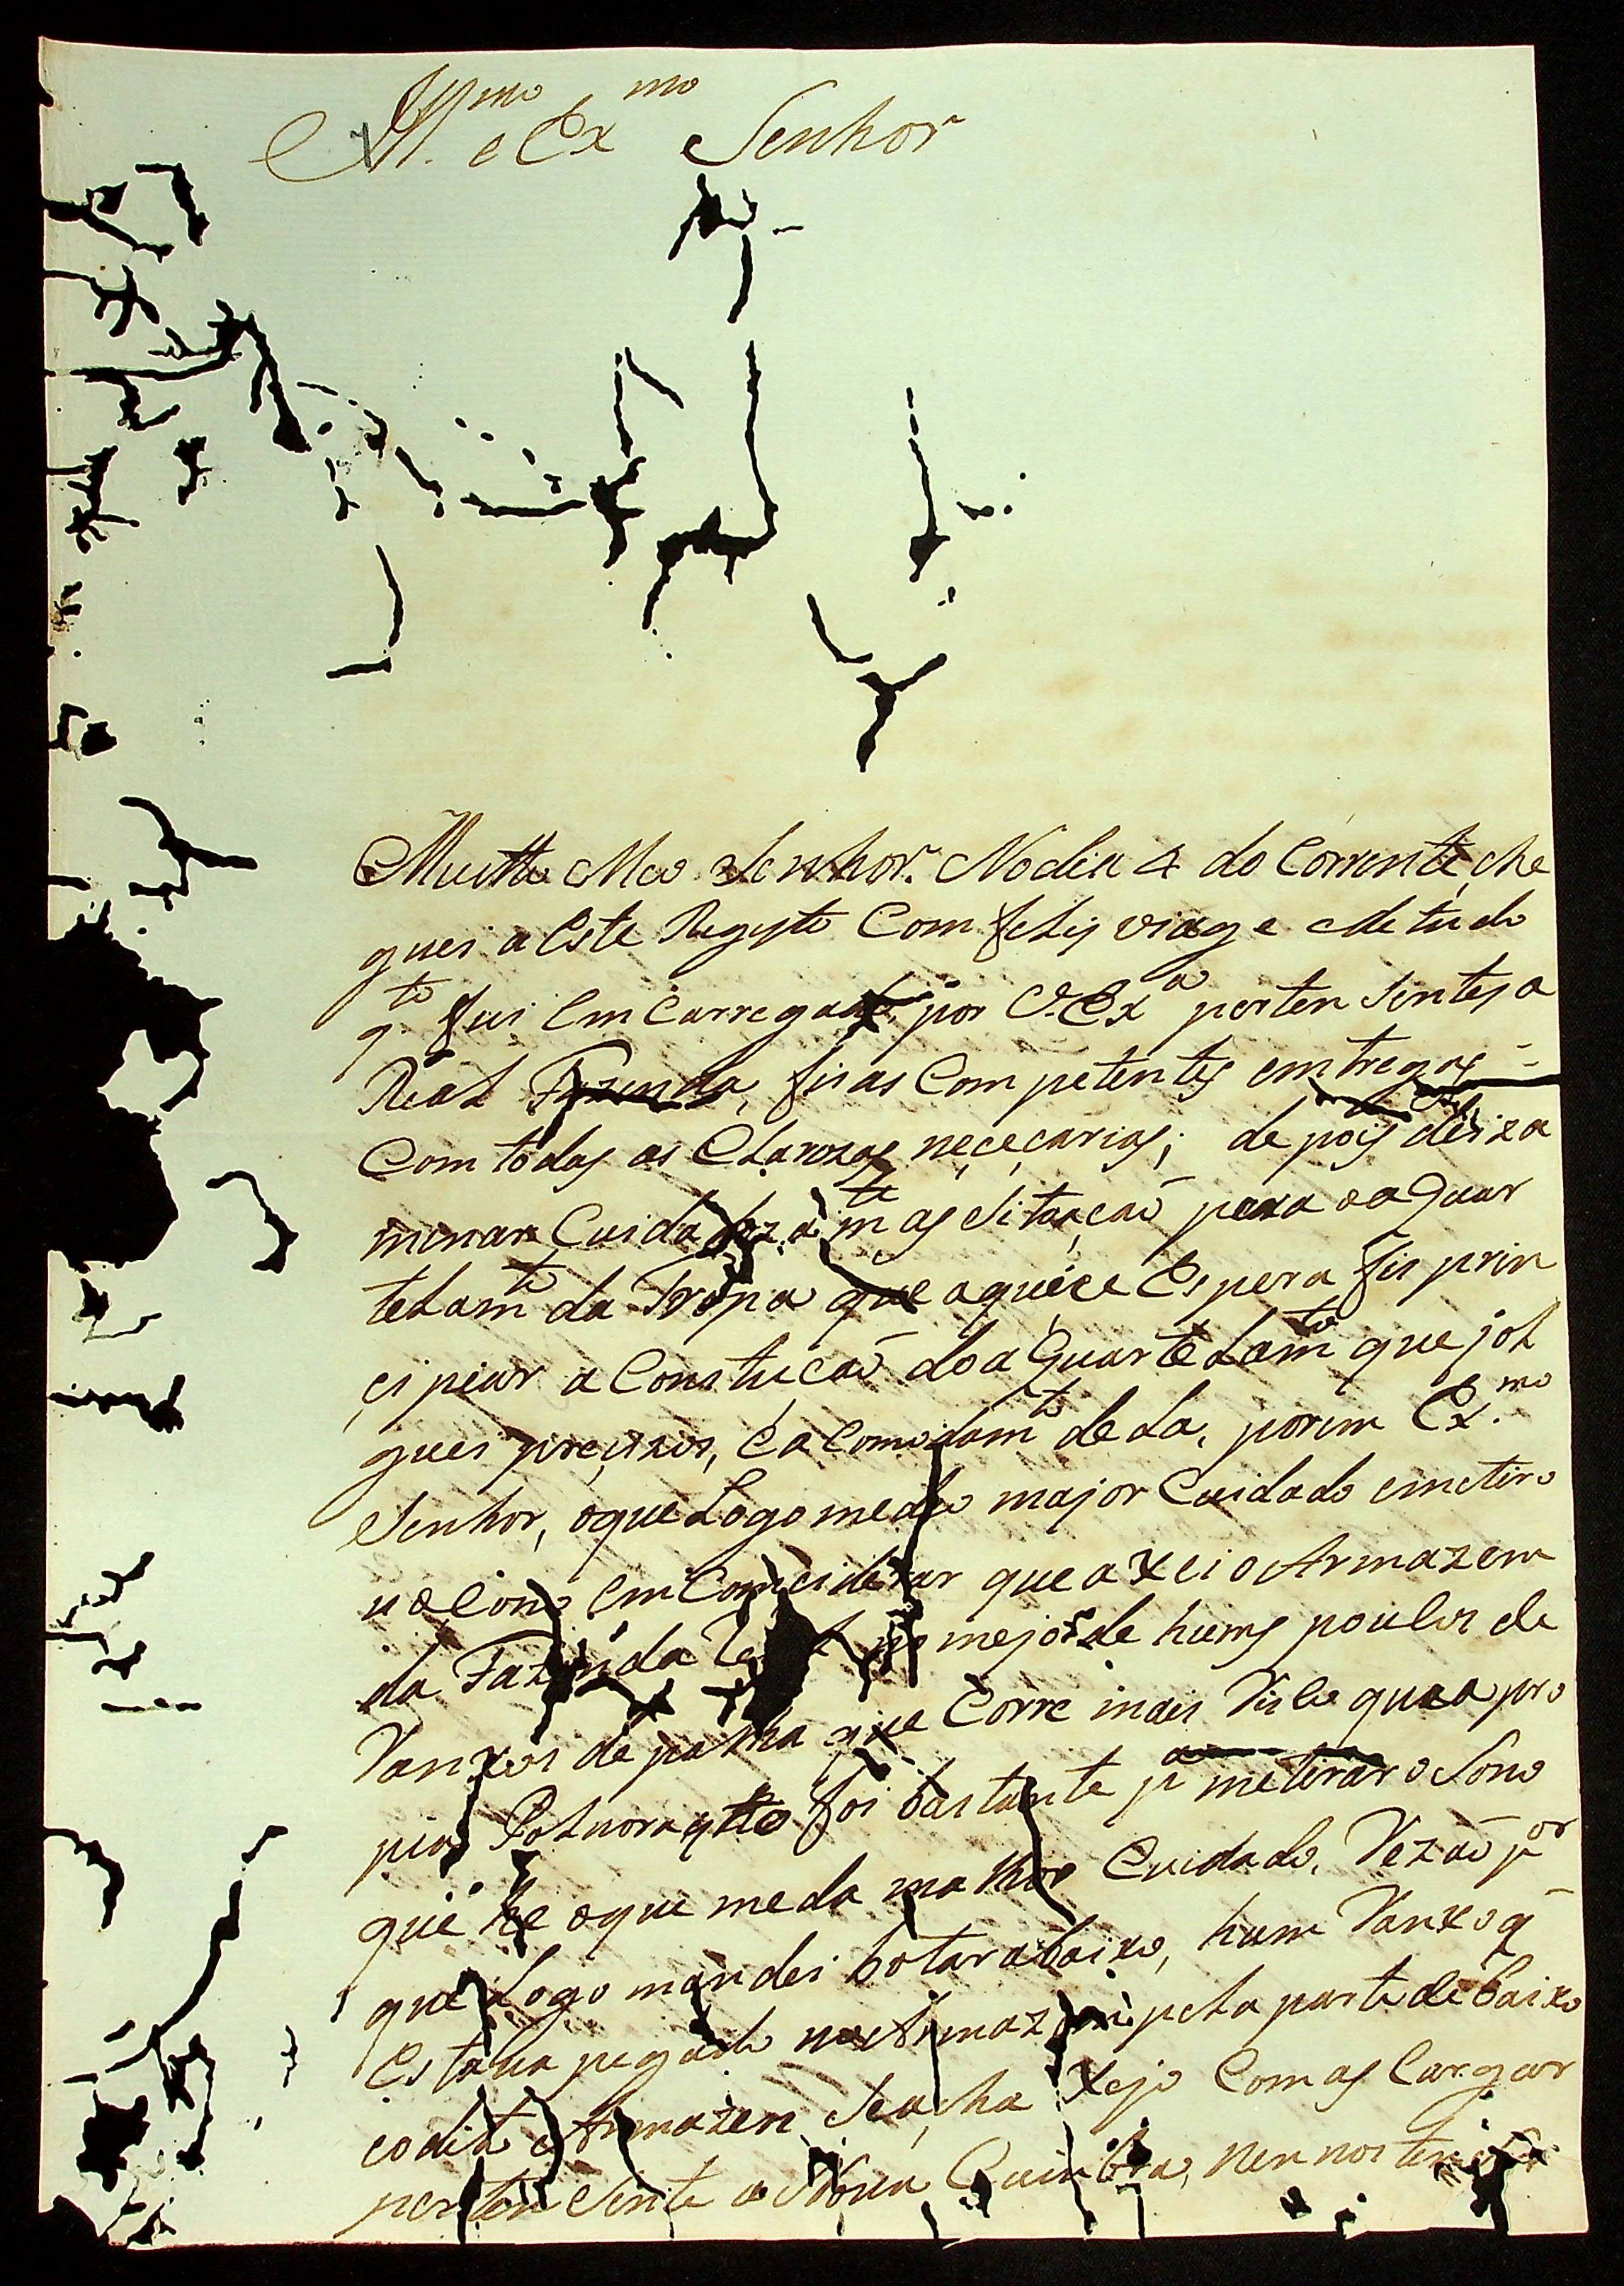 Ill.mo e Ex.mo Senhor
Muitto Meo Senhor. No dia 4 do Corrente, che
guei a Este Regysto Com felis viage e de tudo
q.to fui Emcarregado por V. Ex.a pertensentes a
Real Fazenda, fis as Competentes emtregas
Com todas as Clarezas neçeçarias; depois de iza
minar Cuidadozam.te as Situaçaó para o aquar
telam.to da Tropa que aqui çe Espera fis prin
çipiar a Constuçaó do aquartelam.to que jol
guei preçizos, E acomodam.to dela, porem Ex.mo
Senhor, o que Logo me deo major Cuidado e me tiro
u o Sono Em Comciderar que axei o Armazem
da Fazenda no mejo de huns poulos de
Ranxos de palha que Corre mais Risco que a pro
pia Polvora q.to foi bastante p.a me tirar o Sono
que he o que me da malhor Cuidado, Rezaó por
que Logo mandei botar abaixo, hum Ranxo q̃
Estava pegado no Armazem pela parte de baixo
e o dito Armazen Se acha Xejo Com as Cargas
pertensente a Nova Cuimbra, nen nos